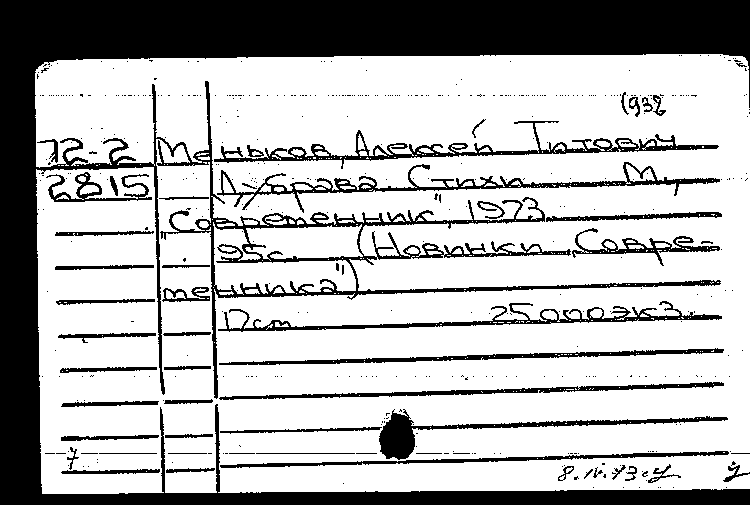 1932
72-2 Меньков, Алексей Титович
2815 Дубрава. Стихи. М.,
"Современник", 1973.
95с. (Новинки "Совре-
менника").
Пст 25000экз.
7 8.IV.73